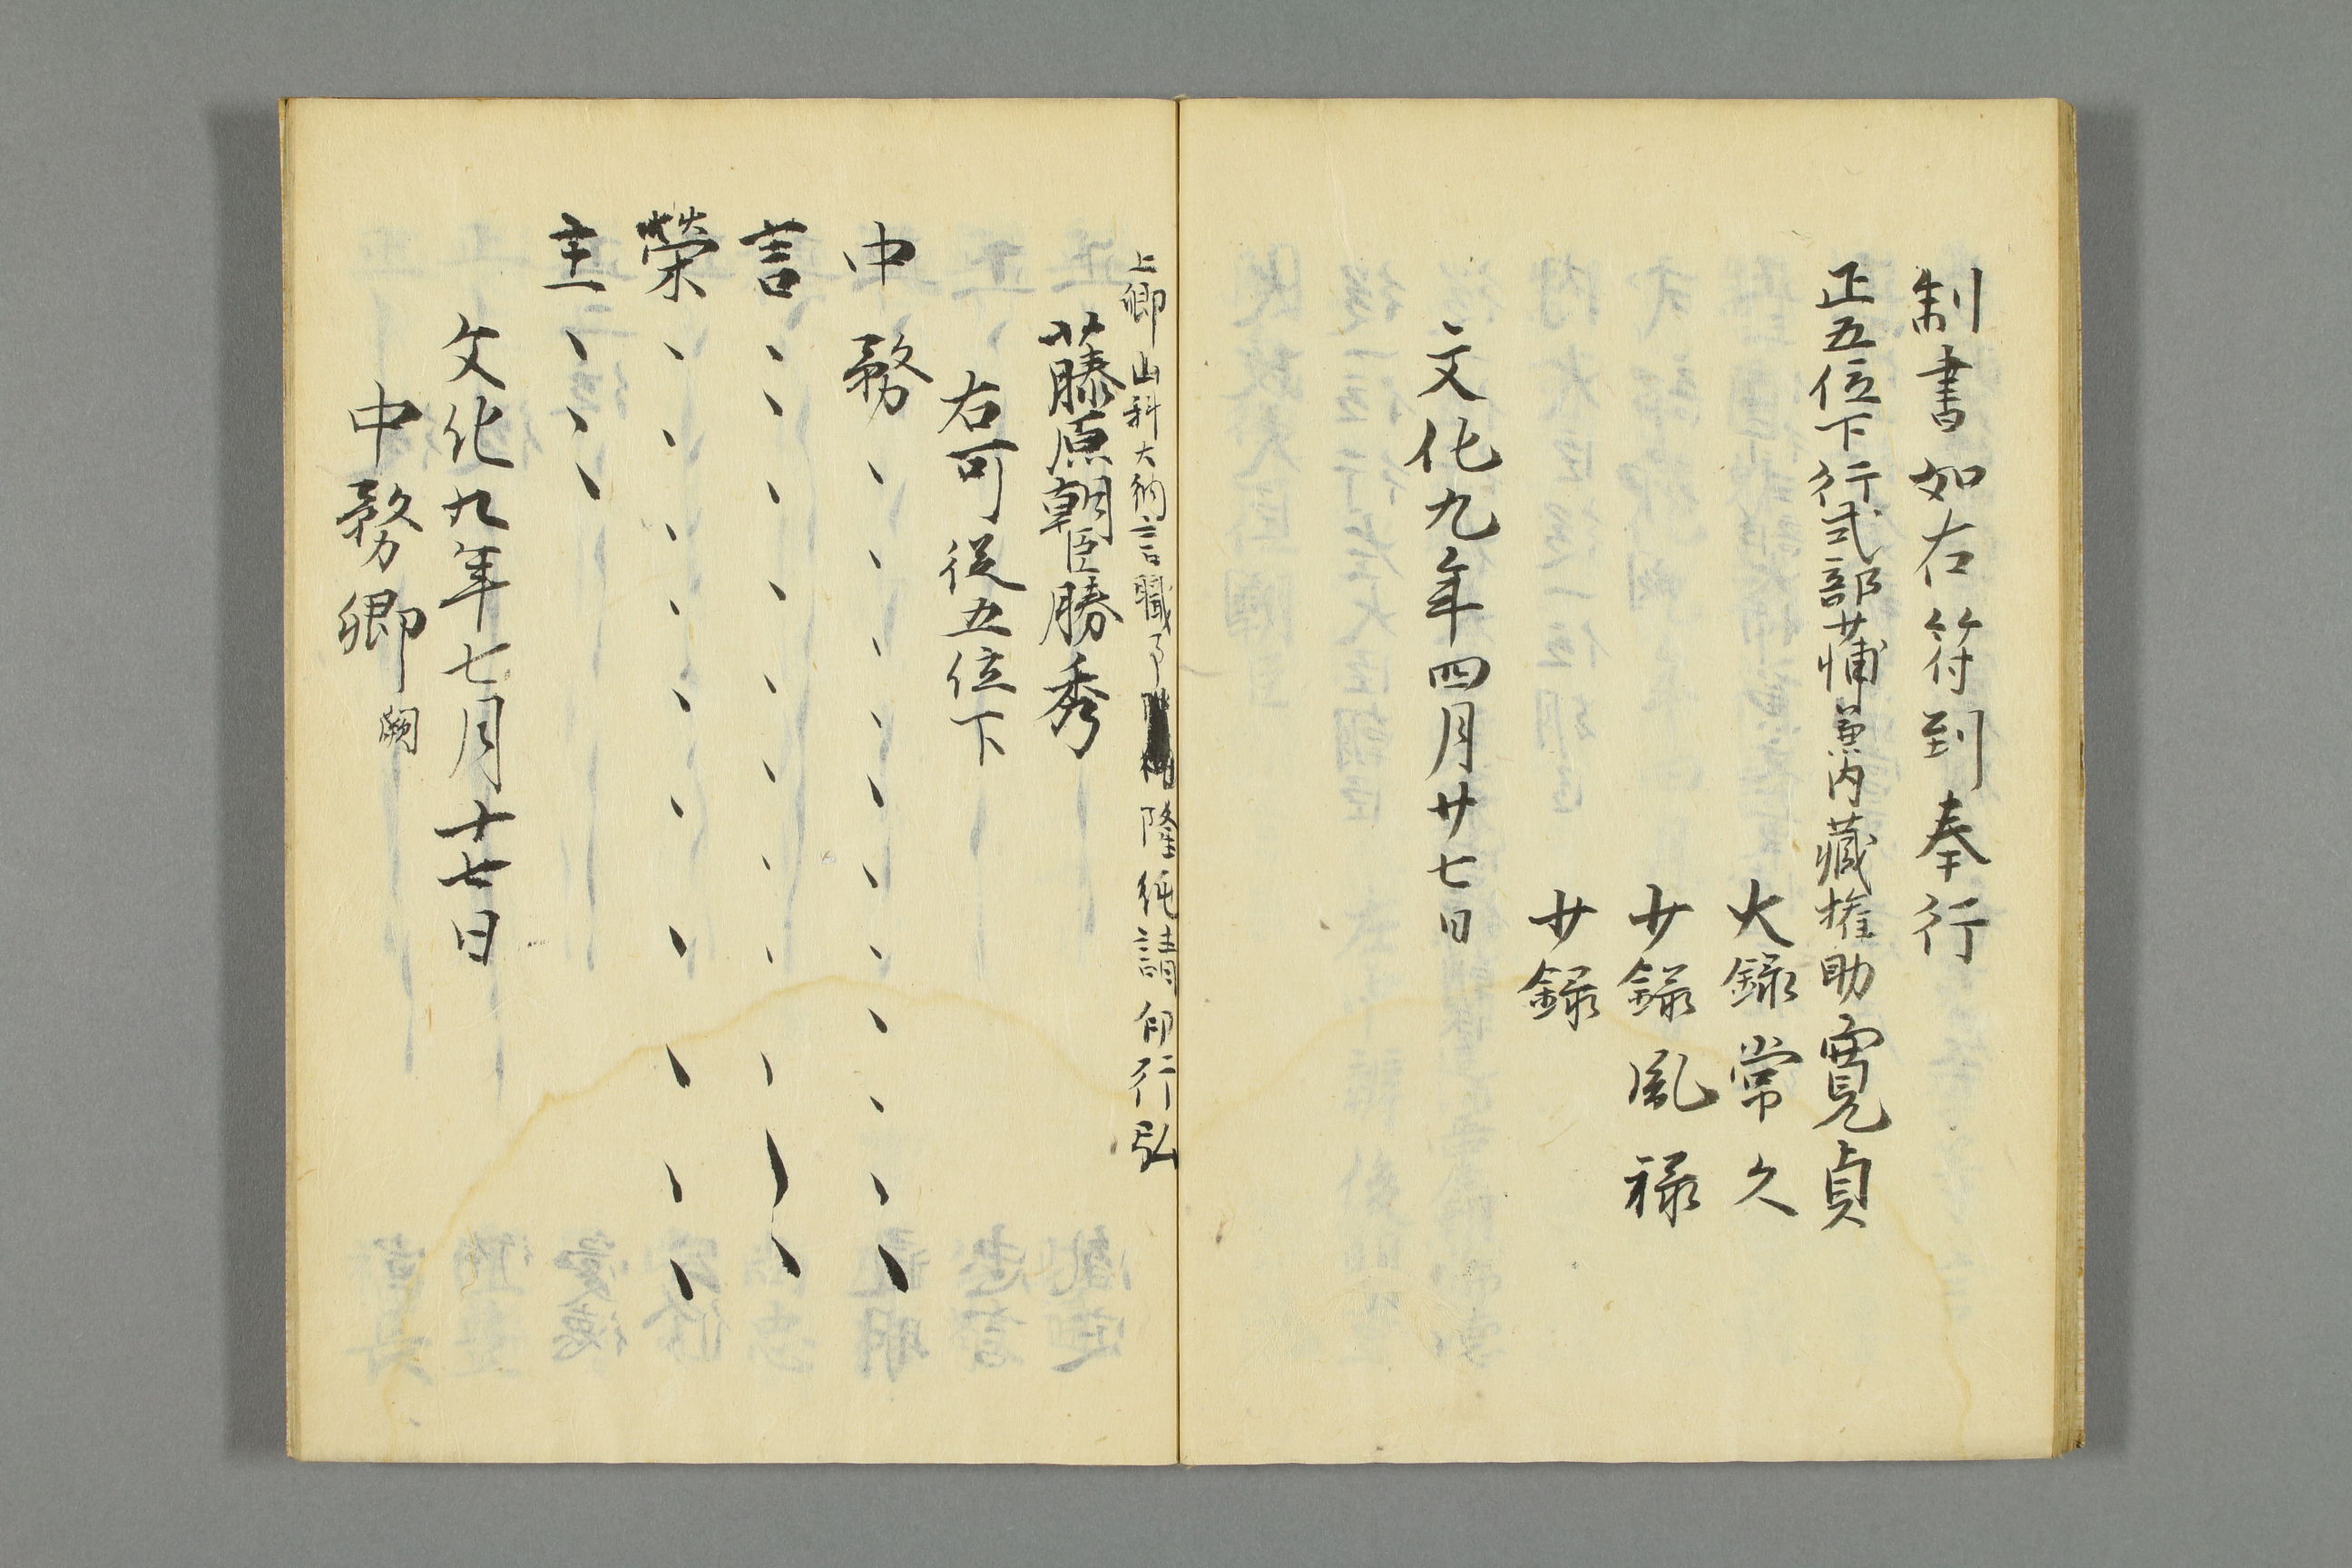 制書如右符到奉行
正五位下行式部少輔兼内蔵権助寛貞
大録常久
少録胤禄
少録
文化九年四月廿七日
上卿山科大納言職事 隆純請印行弘
藤原朝臣勝秀
右可従五位下
中務、、、、、、、、、、、
言、、、、、、、、、、、
榮、、、、、、、、、、、
主、、、
文化九年七月十七日
中務卿 闕